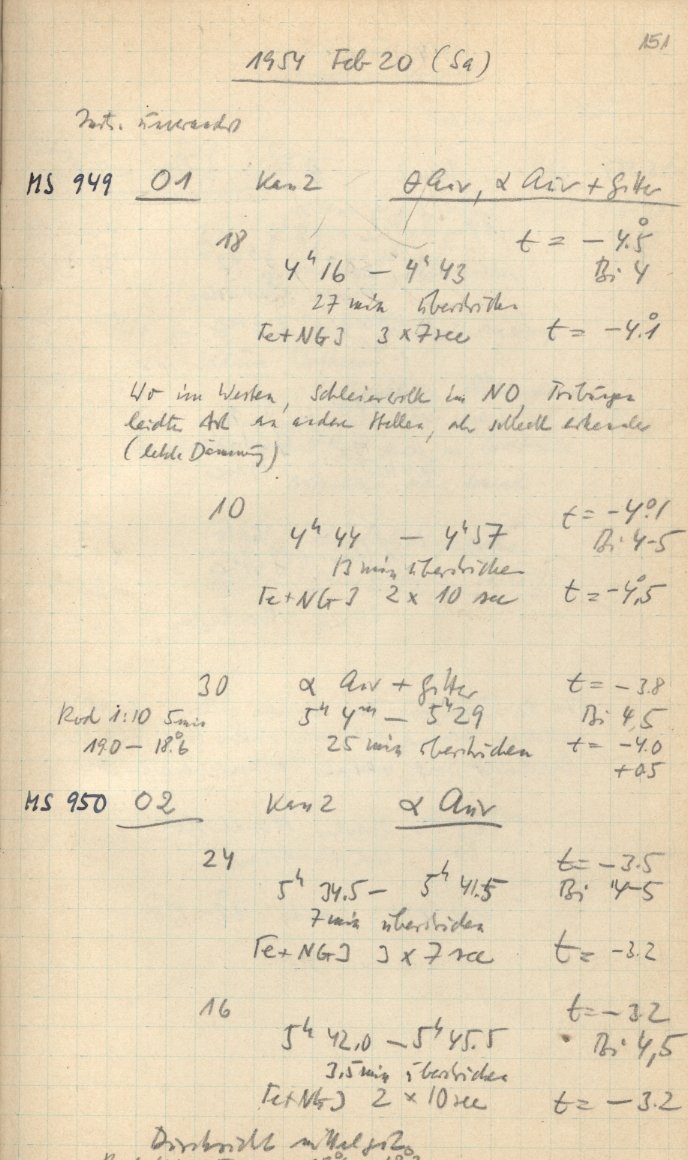 151
1954 Feb 20 (Sa)
Instr. unverändert
MS 949 O1 Kam 2 θ Aur, α Aur + Gitter
18 t = -4.°5
4ʰ16 — 4ʰ43 Bi 4
27 min überstrichen
Fe+NG3 3 x 7 sec t = -4.°1
im Westen, Schleierwolk im NO, Trübungen
leichter Art an anderen Stellen, aber schlecht erkennbar
(letzte Dämmung)
10 t = -4.°1
4ʰ44 — 4ʰ57 Bi 4-5
13 min überstrichen
Fe+NG3 2 x 10 sec t = -4.°5
30 α Aur + Gitter t = -3.8
Rod 1:10 5 min 5ʰ4ᵐ — 5ʰ29 Bi 4,5
19.0 — 18.°6 25 min überstrichen t = -4.0
+0.5
MS 950 O2 Kam 2 α Aur
24 t = -3.5
5ʰ 34.5 — 5ʰ 41.5 Bi 4-5
7 min überstrichen
Fe+NG3 3 x 7 sec t = -3.2
16 t = -3.2
5ʰ 42.0 — 5ʰ 45.5 Bi 4,5
3,5 min überstrichen
Fe+NG3 2 x 10 sec t = -3.2
Durchsicht mittelgut